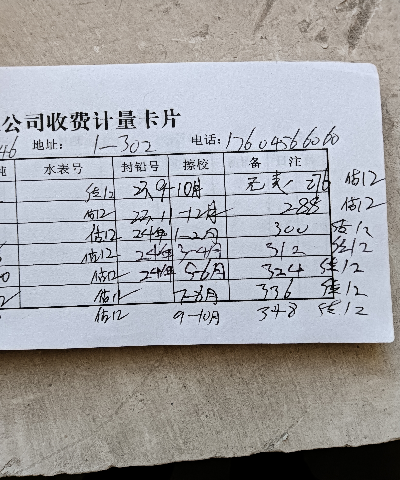 公司收费计量卡片
46 地址: 1-302 电话: 17604566060
吨 水表号 封铅号 擦校 备 注
估12 23.9 10月 无表 276 估12
估12 23.11 -12月 288 估12
估12 24年 1-2月 300 估12
估12 24年 3-4月 312 估12
估12 24年 5-6月 324 估12
估12 7-8月 336 估12
估12 9-10月 348 估12